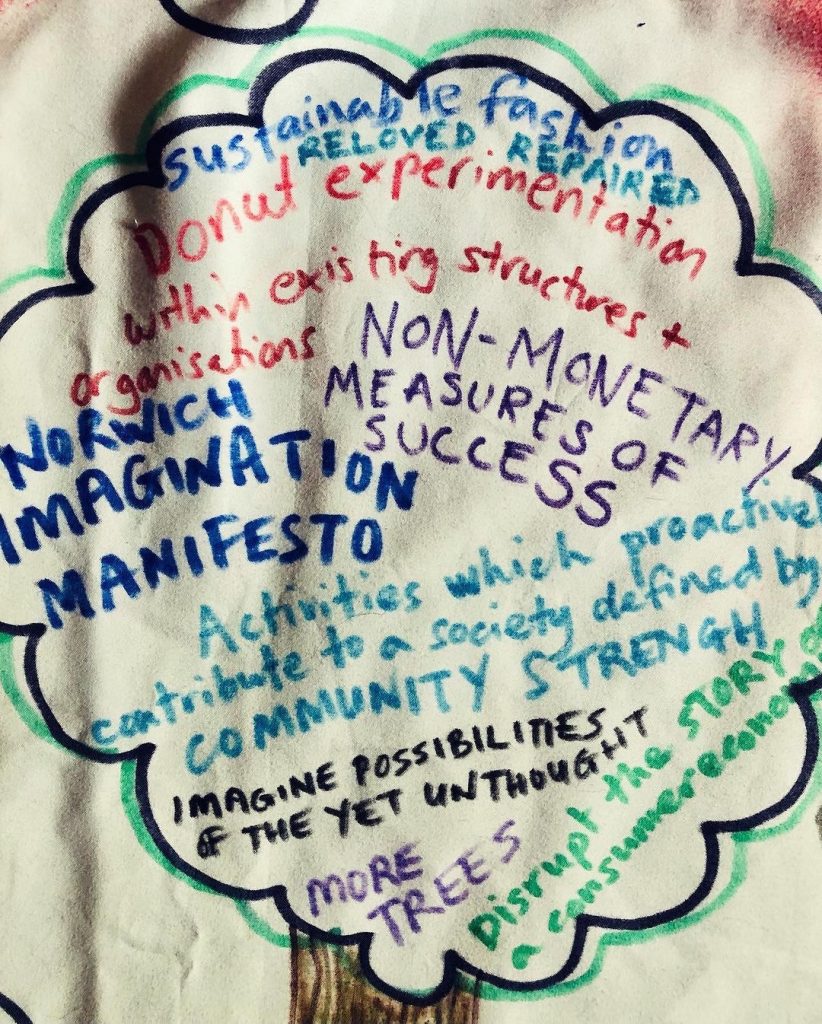 sustainable fashion
RELOVED REPAIRED
Donut experimentation
within existing structures +
organisations
NON-MONETARY
MEASURES OF
SUCCESS
NORWICH
IMAGINATION
MANIFESTO
Activities which proactivel
contribute to a society defined by
COMMUNITY STRENGH
IMAGINE POSSIBILITIES
OF THE YET UNTHOUGHT
MORE
TREES
Disrupt the STORY of
a consumereconom